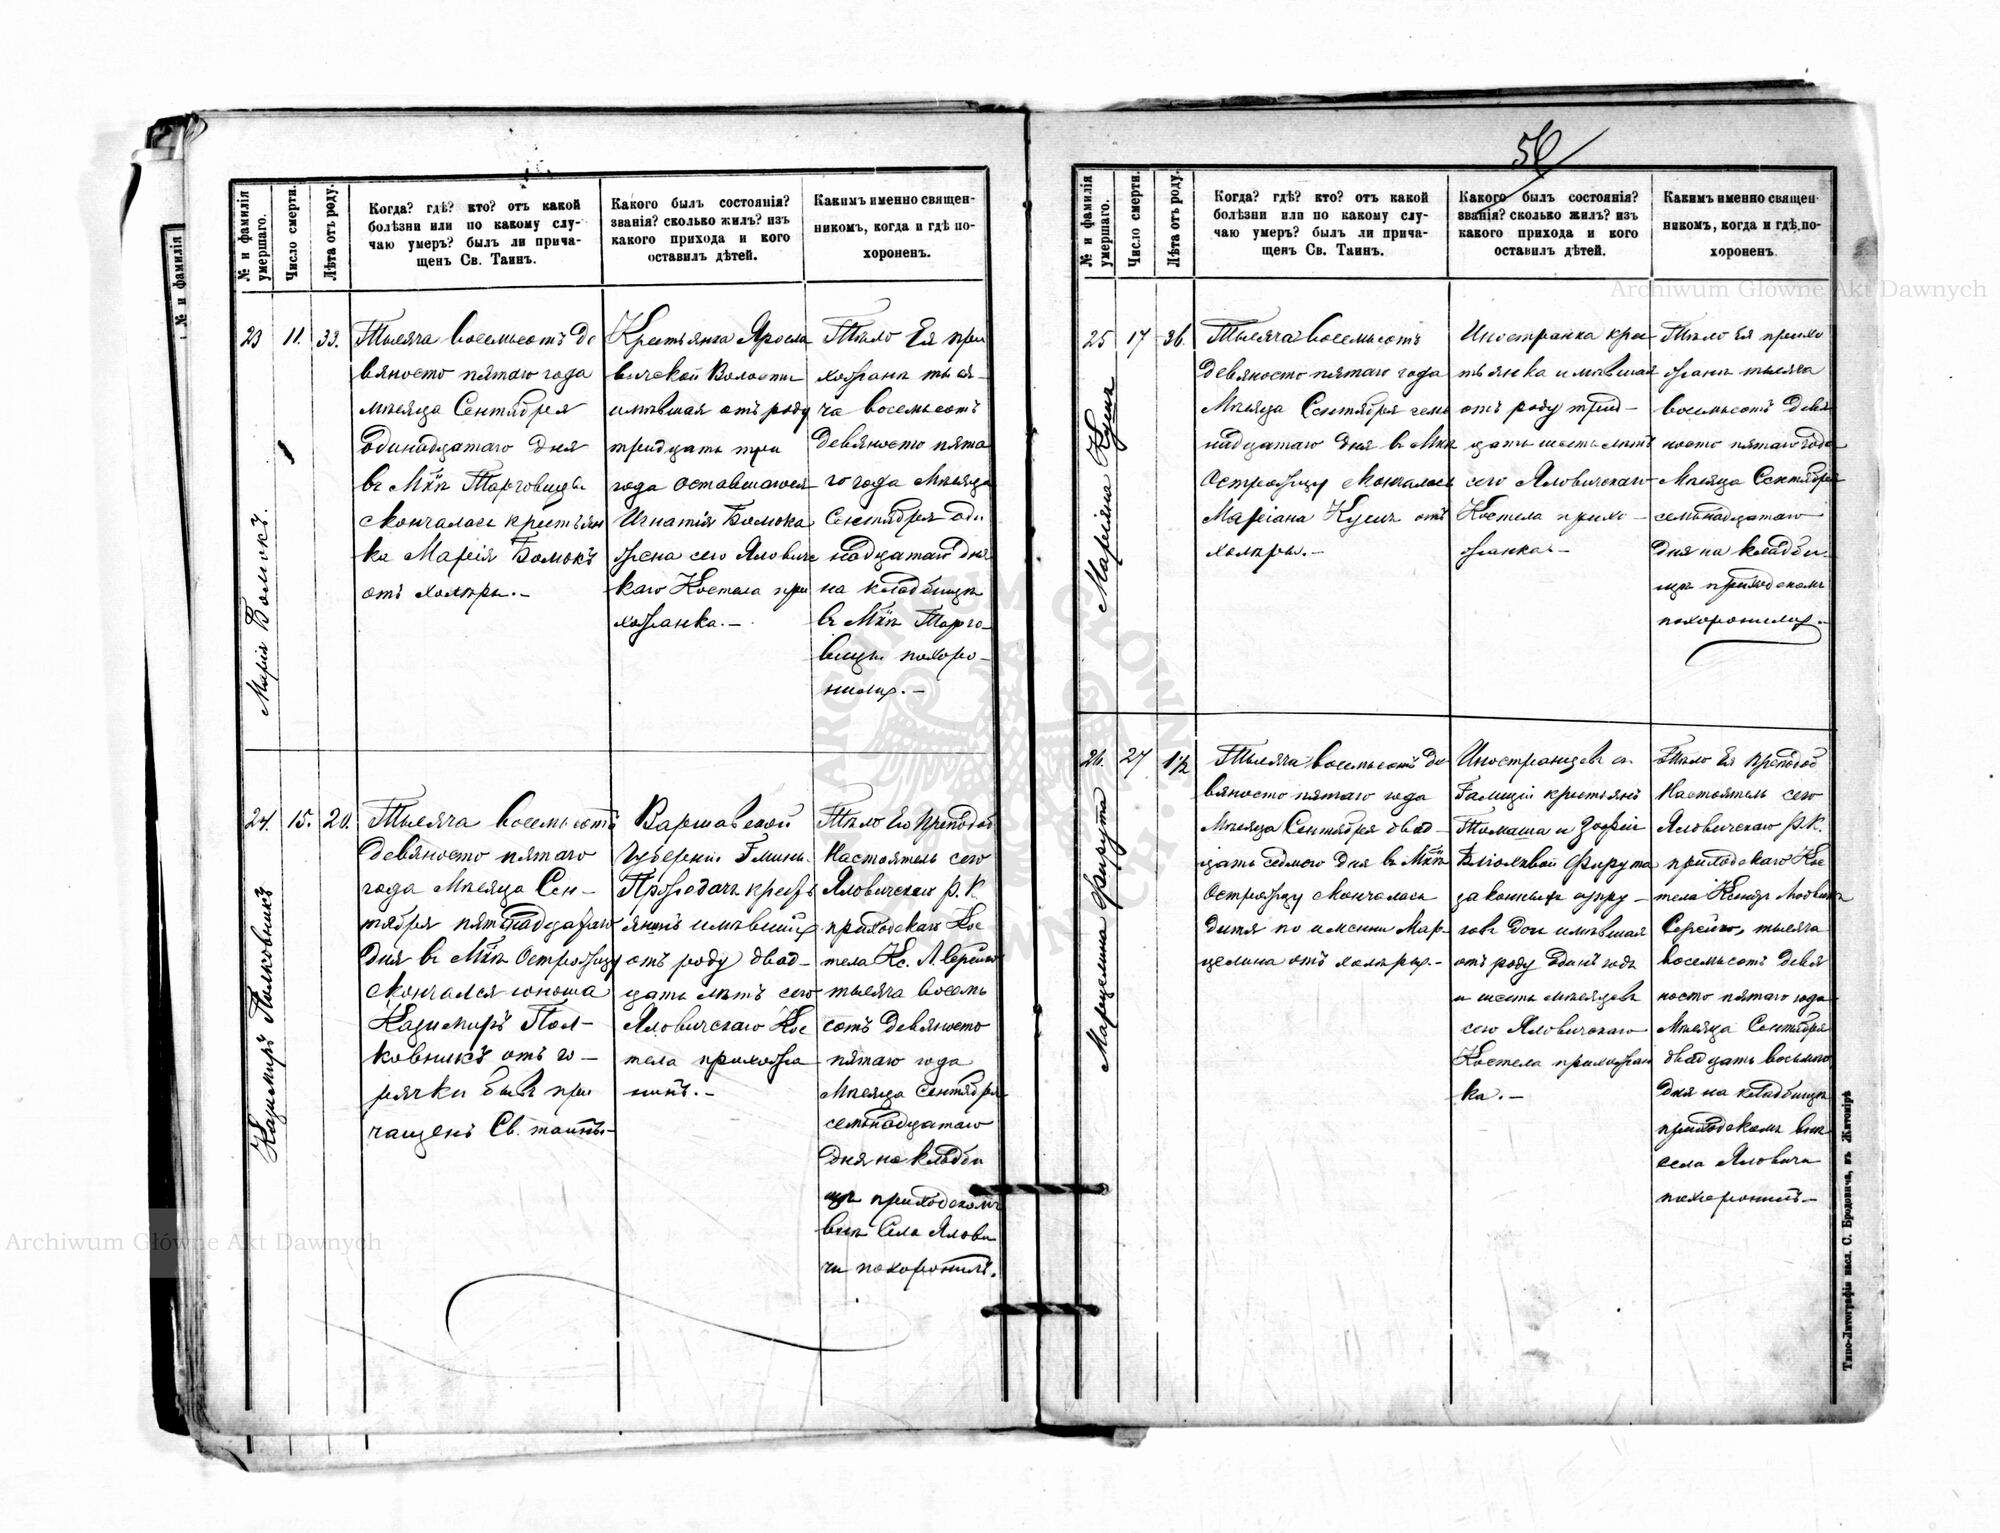 № и фамилія
№ и фамилія умершаго.
Число смерти.
Лѣта отъ роду.
Когда? гдѣ? кто? отъ какой
болѣзни или по какому слу-
чаю умеръ? былъ ли прича-
щенъ Св. Таинъ.
Какого былъ состоянія?
званія? сколько жилъ? изъ
какого прихода и кого
оставилъ дѣтей.
Какимъ именно священ-
никомъ, когда и гдѣ по-
хороненъ.
23
Марія Болюкъ.
11.
33.
Тысяча восемьсотъ де
вяносто пятаго года
мѣсяца Сентября
одинадцатаго дня
въ Мѣст. Торговицы
скончалась крестьян
ка Марія Болюкъ
отъ холеры.—
Крестьянка Яросла
вичской Волости
имѣвшая отъ роду
тридцать три
года оставшаяся
Игнатія Болюка
жена сего Яловичс
каго Костела при
хожанка.—
Тѣло Ея при
хожане тыся-
ча восемьсотъ
девяносто пята
го года Мѣсяца
Сентября оди
надцатаго дня
на кладбищѣ
въ Мѣст. Торго-
вицы похоро-
нили.—
24.
Казимиръ Полковникъ
15.
20.
Тысяча восемьсотъ
девяносто пятаго
года Мѣсяца Сен-
тября пятнадцатаго
дня въ Мѣст. Острожцу
скончался юноша
Казимиръ Пол-
ковникъ отъ го-
рячки былъ при
чащенъ Св. таинъ—
Варшавской
Губерніи Гмины
крест
янинъ имѣвшій
отъ роду двад-
цать лѣтъ сего
Яловичскаго Кос
тела прихожа
нинъ.—
Тѣло Его Преподоб
Настоятель сего
Яловичскаго Р. К
приходскаго Кос
тела Кс. Л. Серейко
тысяча восемь
сотъ девяносто
пятаго года
Мѣсяца Сентября
семнадцатаго
дня на кладби
щѣ приходскомъ
внѣ Села Ялови
чи похоронилъ.
56
№ и фамилія умершаго.
Число смерти.
Лѣта отъ роду.
Когда? гдѣ? кто? отъ какой
болѣзни или по какому слу-
чаю умеръ? былъ ли прича-
щенъ Св. Таинъ.
Какого былъ состоянія?
званія? сколько жилъ? изъ
какого прихода и кого
оставилъ дѣтей.
Какимъ именно священ-
никомъ, когда и гдѣ по-
хороненъ.
25
Маріяна Кусль
17
36.
Тысяча восемьсотъ
девяносто пятаго года
Мѣсяца Сентября семь
надцатаго дня въ Мѣст
Острожцу скончалась
Маріана Кусль отъ
холеры.—
Иностранка крес
тьянка имѣвшая
отъ роду трид-
цать шесть лѣтъ
сего Яловичскаго
Костела прихо-
жанка.—
Тѣло Ея прихо
жане тысяча
восемьсотъ девя
носто пятаго года
Мѣсяца Сентября
семьнадцатаго
дня на кладби
щѣ приходскомъ
похоронили.—
26.
Марцелина Фирута
27
1½
Тысяча восемьсотъ де
вяносто пятаго года
Мѣсяца Сентября двад-
цать седмого дня въ Мѣст
Острожцу скончалась
дитя по имени Мар-
целина отъ холеры.—
Иностранцевъ съ
Галиціи крестьянъ
Томаша и Зофіи
Фирута
законныхъ супру-
говъ дочь имѣвшая
отъ роду одинъ годъ
и шесть мѣсяцевъ
сего Яловичскаго
Костела прихожан
ка.—
Тѣло Ея Преподоб
Настоятель сего
Яловичскаго Р. К.
приходскаго Кос
тела Ксендзъ Людвикъ
Серейко, тысяча
восемьсотъ девя
носто пятаго года
Мѣсяца Сентября
двадцать восьмого
дня на кладбищѣ
приходскомъ внѣ
села Яловичи
похоронилъ—
Типо-Литографія насл. С. Бродовича, въ Житомірѣ
Archiwum Główne Akt Dawnych
Archiwum Główne Akt Dawnych
ARCHIWUM GŁÓWNE AKT DAWNYCH